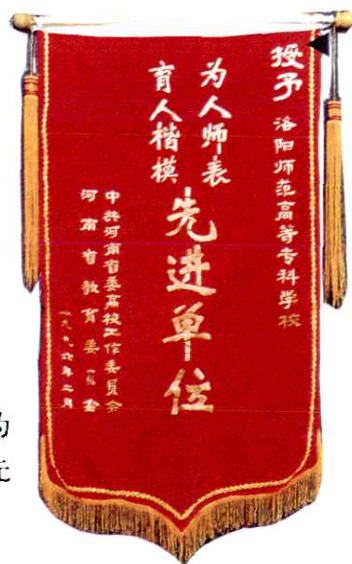 授予 洛阳师范高等专科学校
为人师表
育人楷模
先进单位
中共河南省委高校工作委员会
河南省教育委员会
一九九六年二月